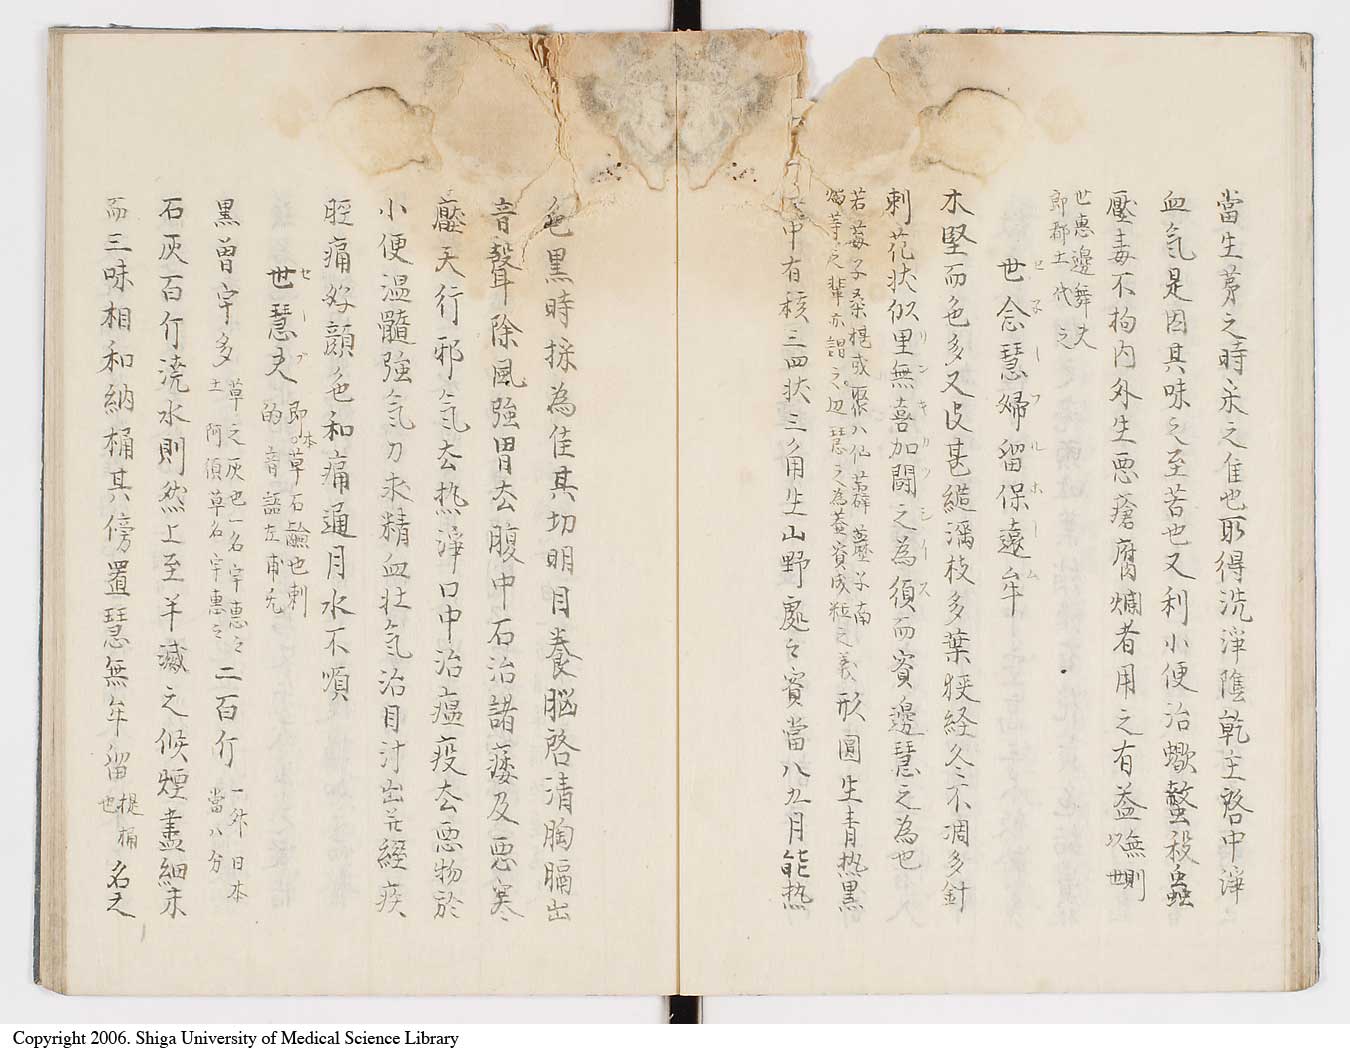 當生芽之時采之佳也取得洗淨陰乾主啓中淨
血気是因其味之至苦也又利小便治蠍螫殺蟲
壓毒不拘内外生悪瘡腐爛者用之有益無則以世
世惠邊舞夫
郎郡土代之
世念慧婦留保遠牟
セ子ーフルホーム
木堅而色多又皮甚縒漓枝多葉狹経久冬不凋多針
刺花状似里無喜加閼之為須而實邊慧之為也
リンキカツシイス
若莓子桑椹或聚八仙薜蘽子南
等之輩亦謂之邊慧之為蓋實成粒之義
形圓生青熱黒
中有核三四状三角生山野處々實當八九月能熱
色黒時採為佳其切明目養腦啓清胸膈出
音聲除風強胃去腹中石治諸痿及悪寒
癧天行邪気去熱淨口中治瘟疫去悪物於
小便温髓強気力求精血壮気治目汁出並經疾
脛痛好顔色和痛通月水不順
世慧夫
セーブ
即本草石鹼也刺
的音語左甫兀
黒曽宇多
草之灰也一名宇惠々
土阿須草名宇惠之
二百斤
一斤日本
當八分
石灰百斤澆水則然上至半減之候煙盡細末
而三味相和納桶其傍置慧無牟留
提桶
也
名之
Copyright 2006. Shiga University of Medical Science Library